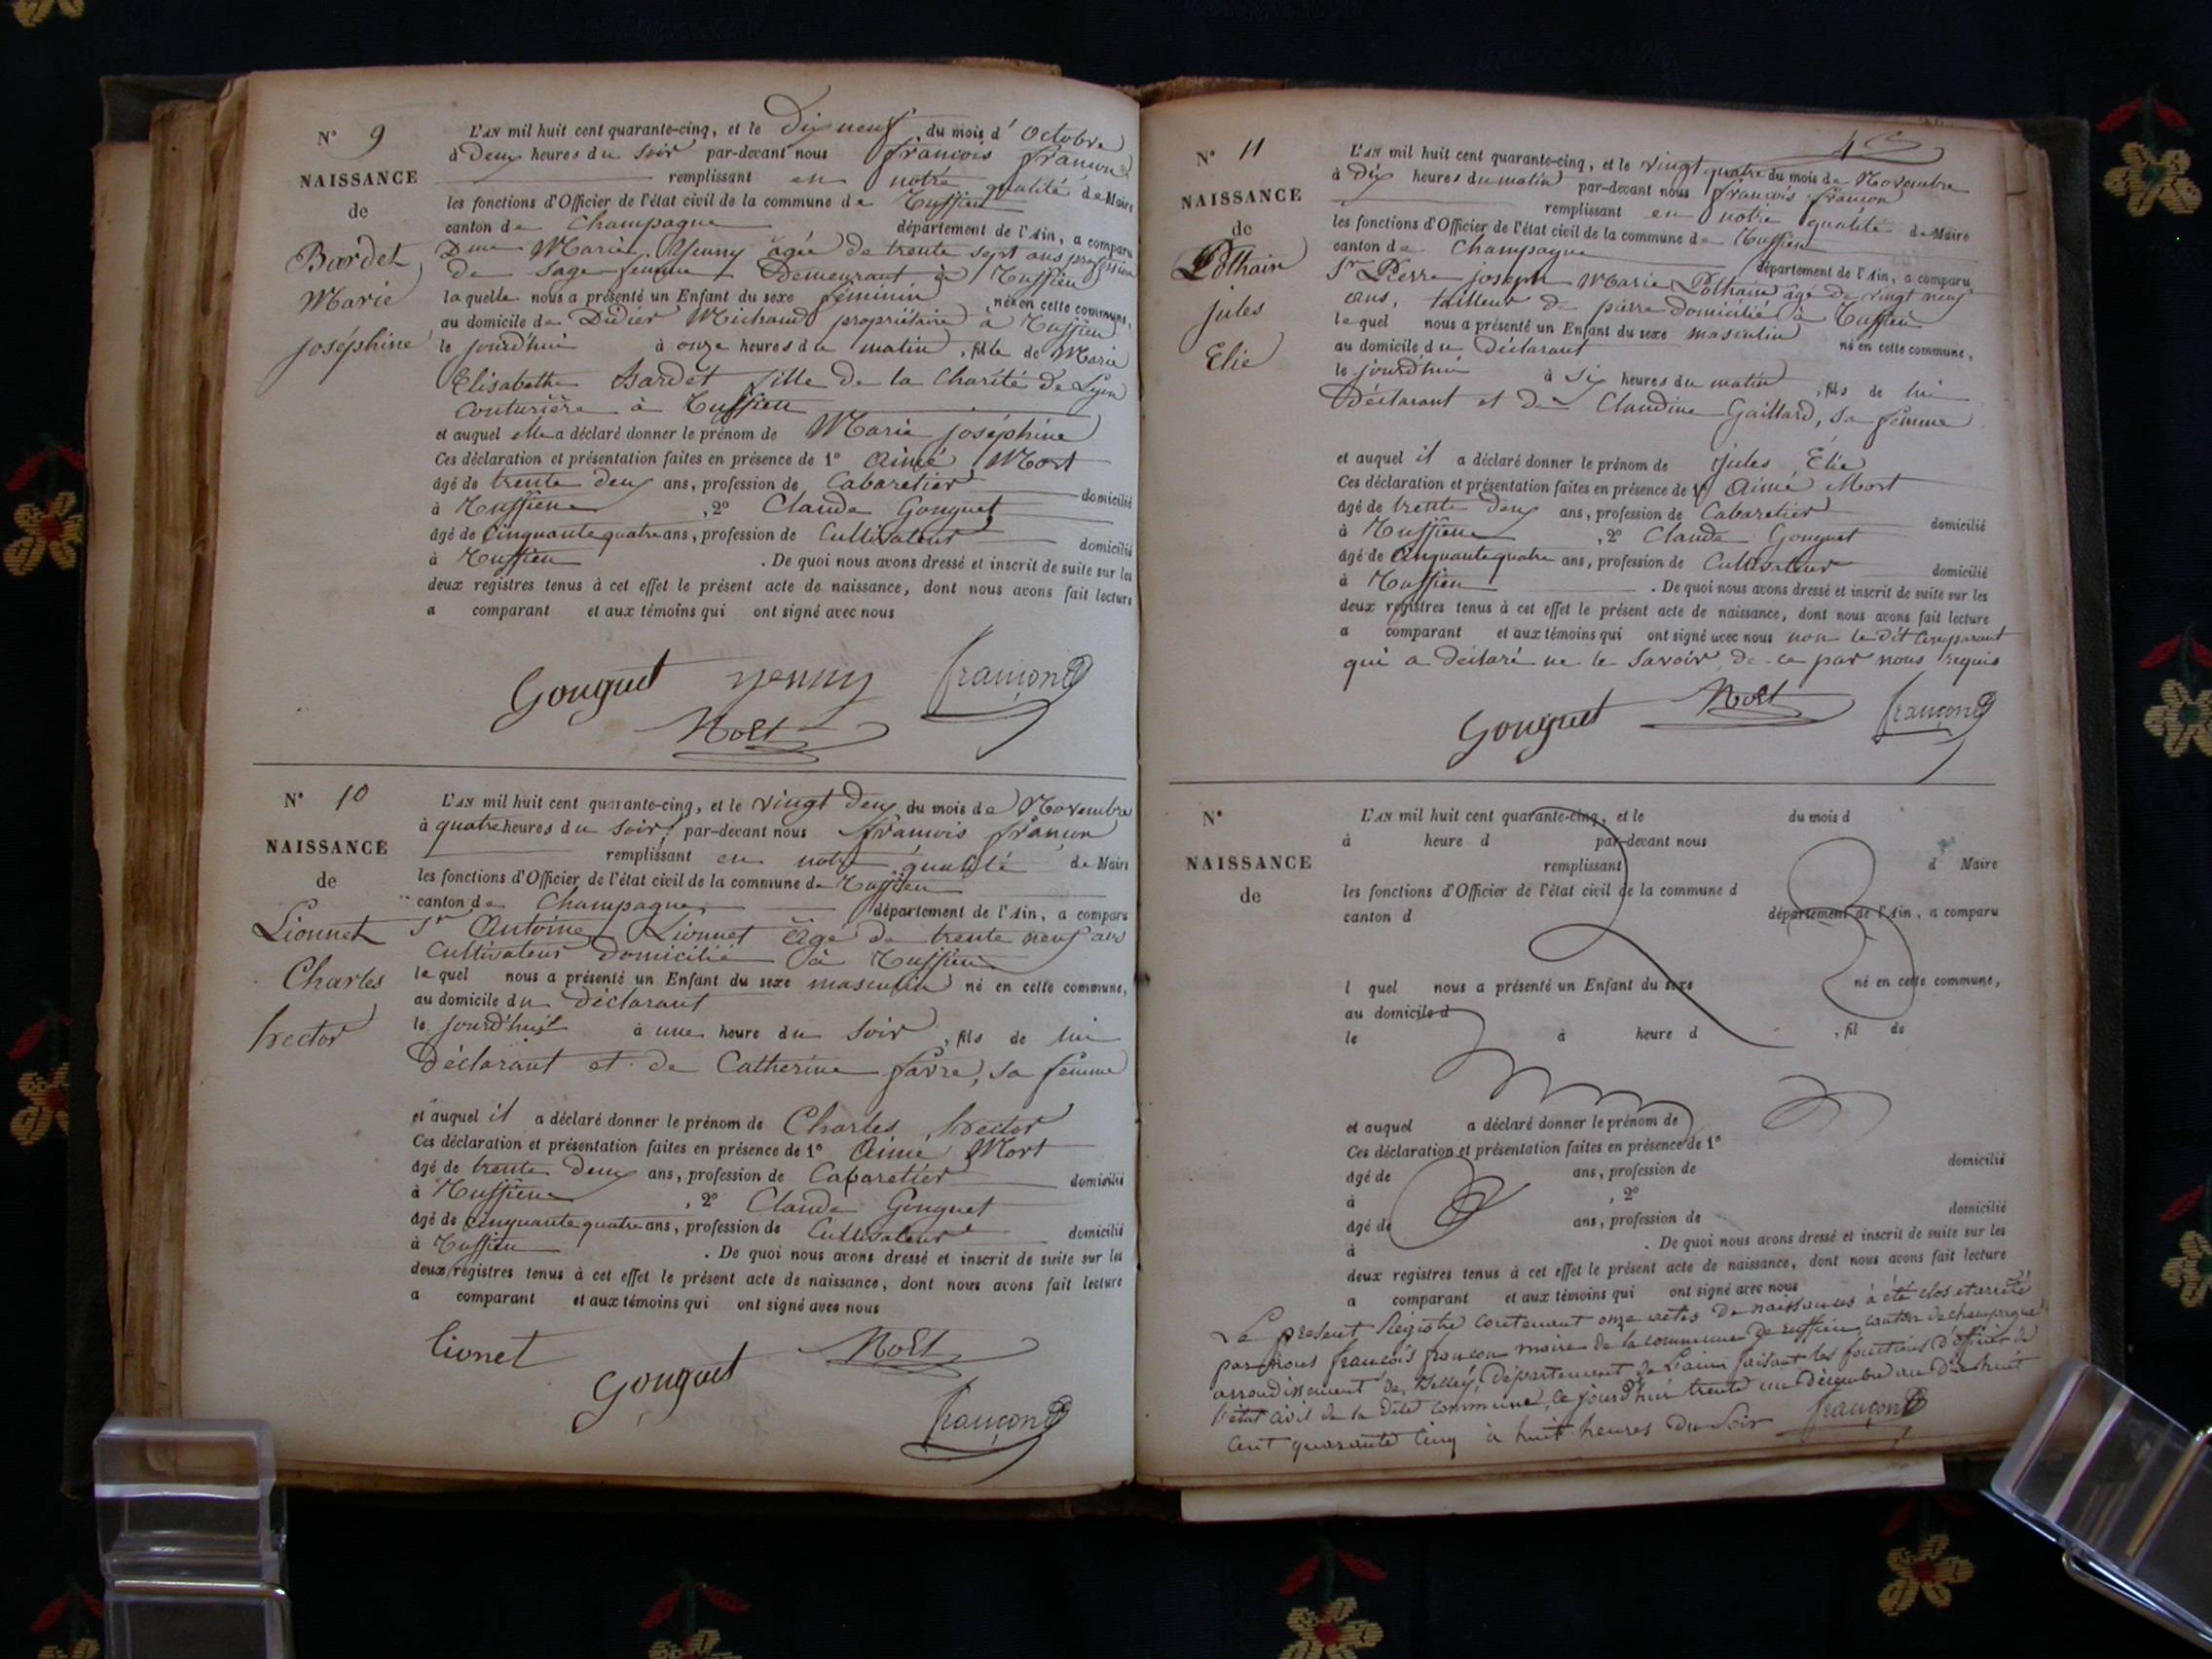 N° 9
NAISSANCE
de
Bardet
Marie
joséphine
L'AN mil huit cent quarante-cinq, et le Dix neuf du mois d' Octobre
à Deux heures du Soir par-devant nous françois françon
remplissant en notre qualité de Maire
les fonctions d'Officier de l'état civil de la commune de Ruffieu
canton de Champagne département de l'Ain, a comparu
Dme Marie Yenny âgée de trente sept ans profession
de Sage femme Demeurant à Ruffieu
laquelle nous a présenté un Enfant du sexe féminin né en cette commune,
au domicile de Didier Michaud propriétaire à Ruffieu
le jourd'hui à onze heures du matin, fille de Marie
Elisabeth Bardet fille de la Charité de Lyon
Couturière à Ruffieu
et auquel elle a déclaré donner le prénom de Marie joséphine
Ces déclaration et présentation faites en présence de 1° Aimé Mort
âgé de trente deux ans, profession de Cabaretier domicilié
à Ruffieu, 2° Claude Gonguet
âgé de Cinquante quatre ans, profession de Cultivateur domicilié
à Ruffieu. De quoi nous avons dressé et inscrit de suite sur les
deux registres tenus à cet effet le présent acte de naissance, dont nous avons fait lecture
a comparant et aux témoins qui ont signé avec nous
Gonguet yenny françon
Mort
N° 10
NAISSANCE
de
Lionnet
Charles
hector
L'AN mil huit cent quarante-cinq, et le vingt Deux du mois de Novembre
à quatre heures du Soir par-devant nous françois françon
remplissant en notre qualité de Maire
les fonctions d'Officier de l'état civil de la commune de Ruffieu
canton de Champagne département de l'Ain, a comparu
Sr Antoine Lionnet âgé de trente neuf ans
Cultivateur domicilié à Ruffieu
lequel nous a présenté un Enfant du sexe masculin né en cette commune,
au domicile du déclarant
le jourd'hui à une heure du Soir, fils de lui
Déclarant et de Catherine favre, sa femme
et auquel il a déclaré donner le prénom de Charles hector
Ces déclaration et présentation faites en présence de 1° Aimé Mort
âgé de trente Deux ans, profession de Cabaretier domicilié
à Ruffieu, 2° Claude Gonguet
âgé de Cinquante quatre ans, profession de Cultivateur domicilié
à Ruffieu. De quoi nous avons dressé et inscrit de suite sur les
deux registres tenus à cet effet le présent acte de naissance, dont nous avons fait lecture
a comparant et aux témoins qui ont signé avec nous
lionet Mort
Gonguet
françon
N° 11
NAISSANCE
de
Pothain
jules
Elie
L'AN mil huit cent quarante-cinq, et le vingt quatre du mois de Novembre
à Dix heures du matin par-devant nous françois françon
remplissant en notre qualité de Maire
les fonctions d'Officier de l'état civil de la commune de Ruffieu
canton de Champagne département de l'Ain, a comparu
Sr Pierre joseph Marie Pothain âgé de vingt neuf
ans, tailleur de pierre domicilié à Ruffieu
lequel nous a présenté un Enfant du sexe masculin né en cette commune,
au domicile du Déclarant
le jourd'hui à Six heures du matin, fils de lui
Déclarant et de Claudine Gaillard, sa femme
et auquel il a déclaré donner le prénom de jules Élie
Ces déclaration et présentation faites en présence de 1° Aimé Mort
âgé de trente Deux ans, profession de Cabaretier domicilié
à Ruffieu, 2° Claude Gonguet
âgé de Cinquante quatre ans, profession de Cultivateur domicilié
à Ruffieu. De quoi nous avons dressé et inscrit de suite sur les
deux registres tenus à cet effet le présent acte de naissance, dont nous avons fait lecture
a comparant et aux témoins qui ont signé avec nous non le dit Comparant
qui a déclaré ne le Savoir de ce par nous requis
Gonguet Mort françon
N°
NAISSANCE
de
L'AN mil huit cent quarante-cinq, et le du mois d
à heure d par-devant nous
remplissant d Maire
les fonctions d'Officier de l'état civil de la commune d
canton d département de l'Ain, a comparu
l quel nous a présenté un Enfant du sexe né en cette commune,
au domicile d
le à heure d, fil de
et auquel a déclaré donner le prénom de
Ces déclaration et présentation faites en présence de 1°
âgé de ans, profession de domicilié
à, 2°
âgé de ans, profession de domicilié
à. De quoi nous avons dressé et inscrit de suite sur les
deux registres tenus à cet effet le présent acte de naissance, dont nous avons fait lecture
a comparant et aux témoins qui ont signé avec nous
Le présent Registre contenant onze actes de naissances à été clos et arrêté
par nous françois françon maire de la commune de ruffieu canton de champagne
arrondissement de Belley, département de l'ain faisant les fonctions d'officier de
l'état civil de la dite commune, ce jourd'hui trente un décembre an Dix huit
Cent quarante Cinq à huit heures du Soir françon